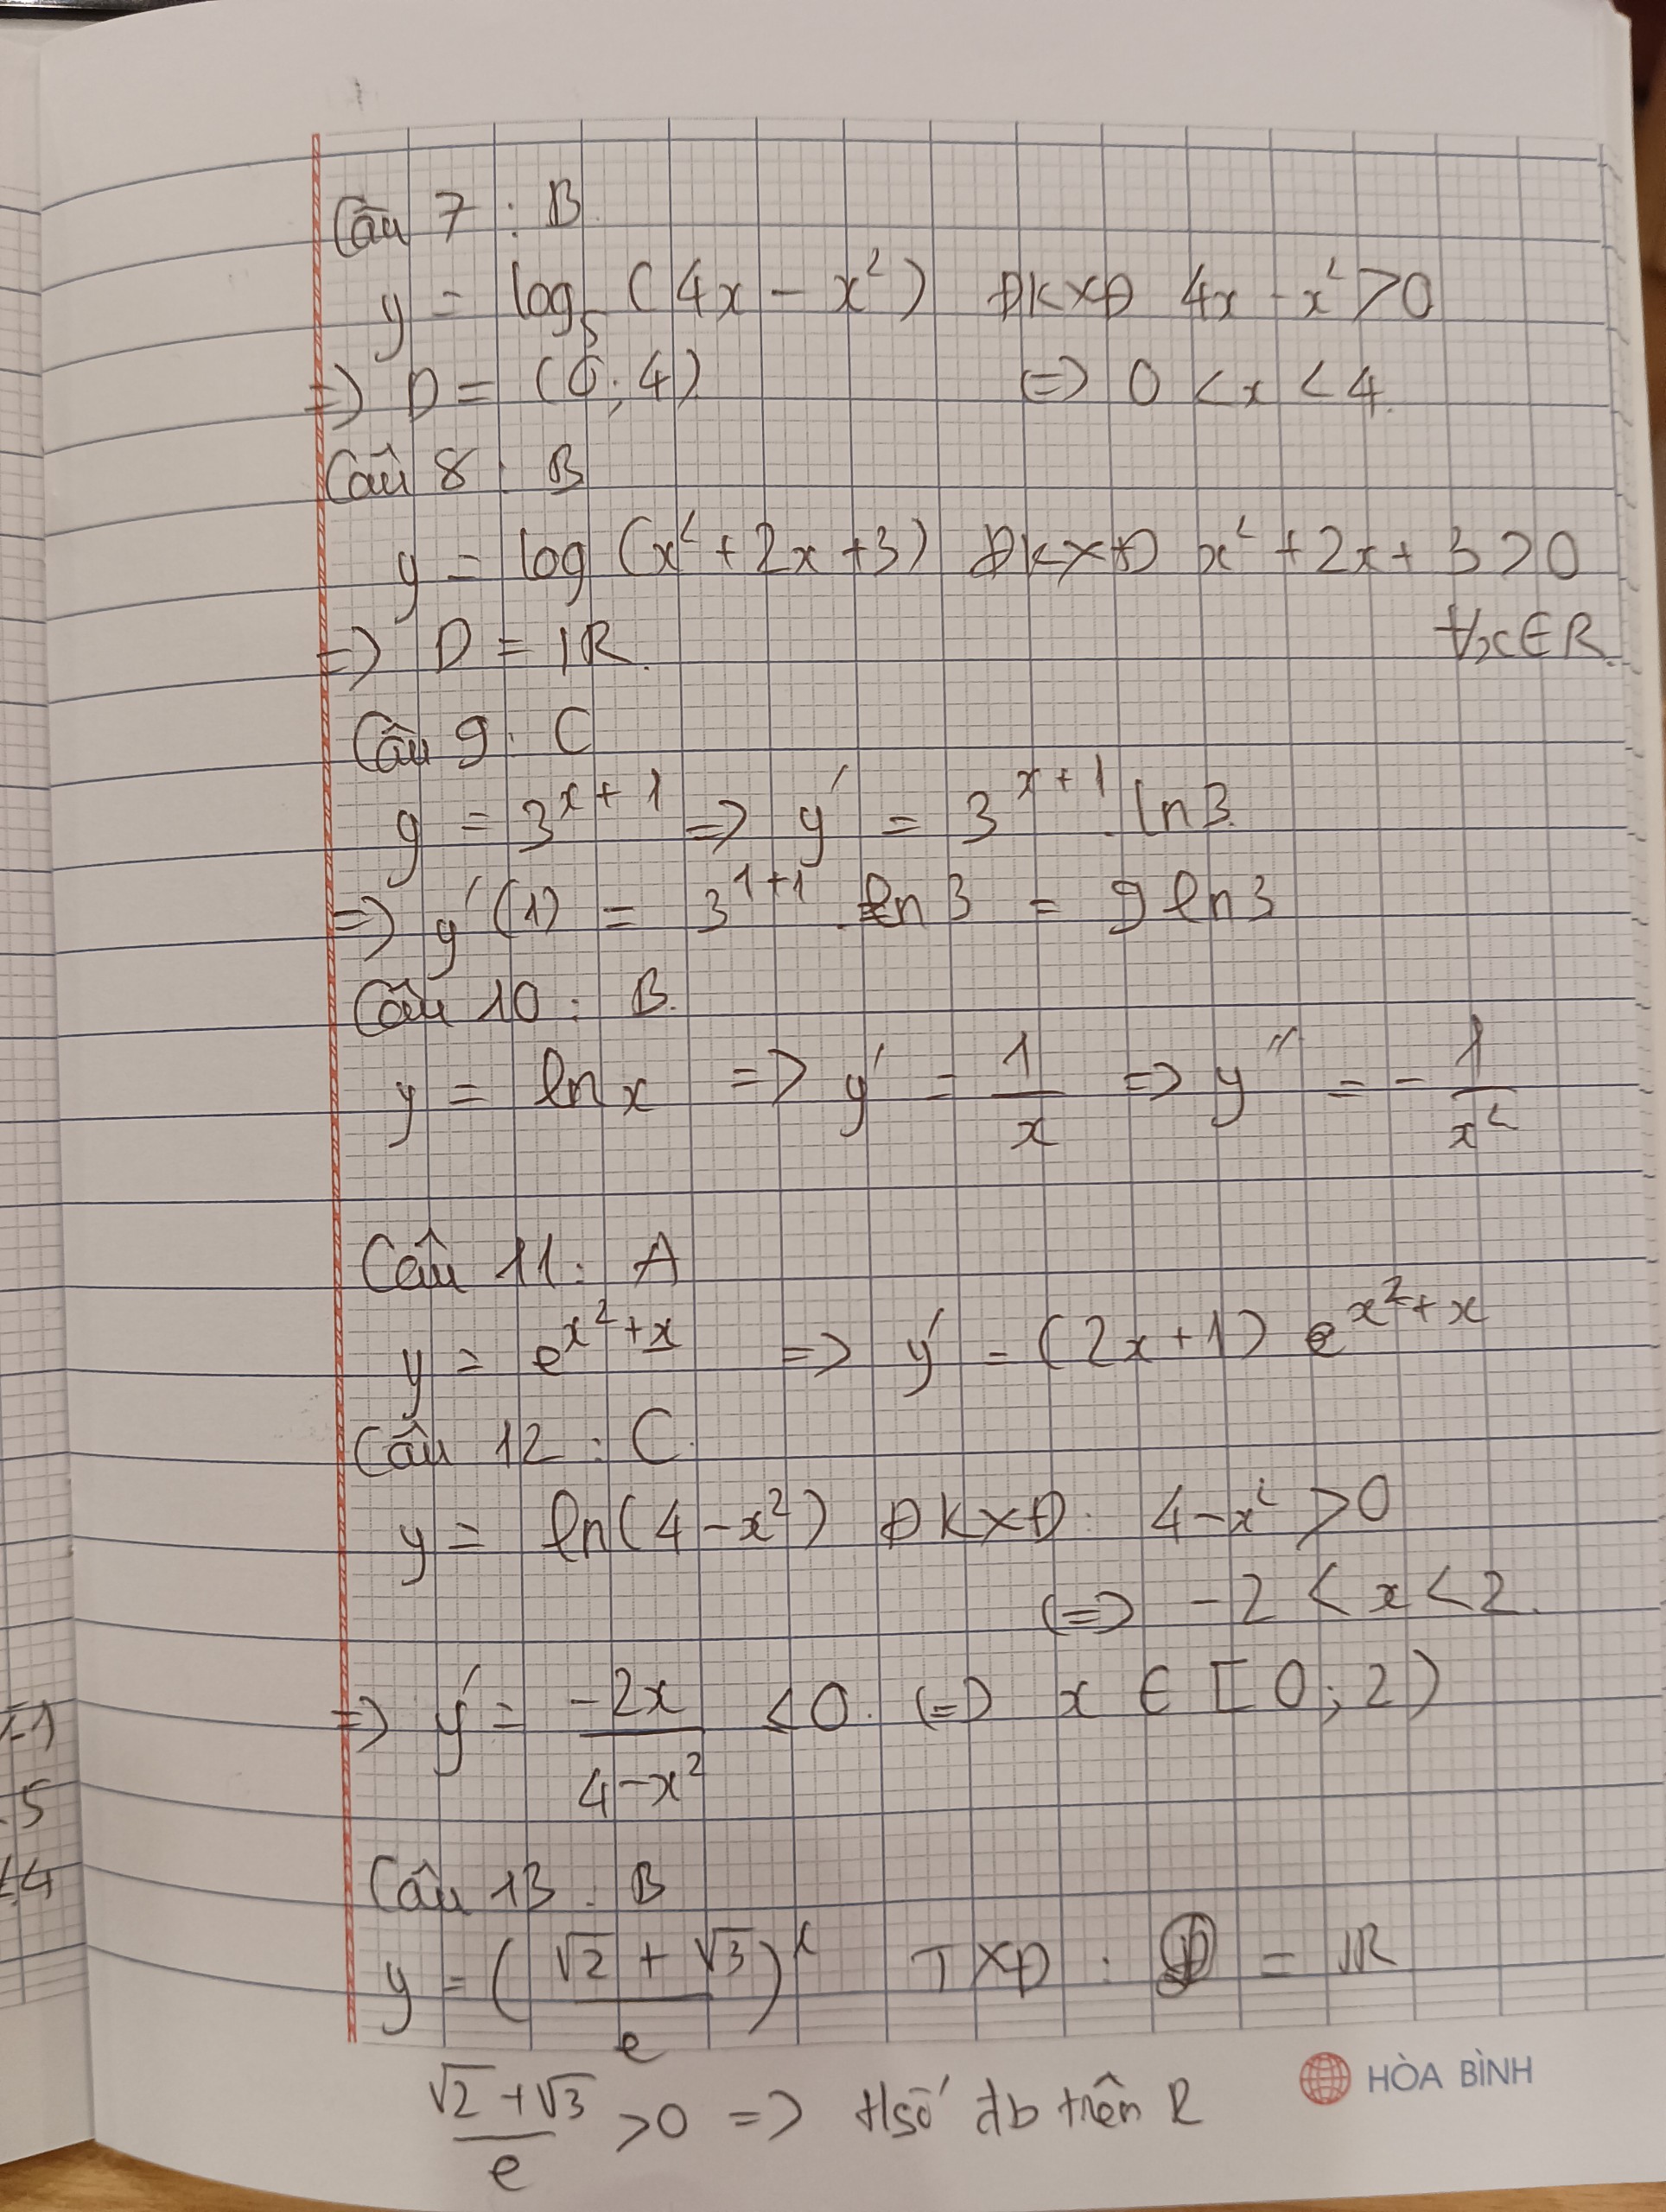 Câu 7 : B.
y = log₅ (4x - x²) ĐKXĐ 4x - x² > 0
=> D = (0; 4) (=) 0 < x < 4.
Câu 8 : B
y = log (x² + 2x + 3) ĐKXĐ x² + 2x + 3 > 0
=> D = |R. ∀x ∈ R.
Câu 9 : C
y = 3^(x+1) => y' = 3^(x+1) . ln3.
=> y'(1) = 3^(1+1) . ln3 = 9 ln3
Câu 10 : B.
y = ln x => y' = 1/x => y'' = - 1/x²
Câu 11 : A
y = e^(x²+x) => y' = (2x+1) e^(x²+x)
Câu 12 : C.
y = ln(4-x²) ĐKXĐ: 4-x² > 0
(=) -2 < x < 2.
=> y' = -2x/(4-x²) < 0. (=) x ∈ [0; 2)
Câu 13 : B
y = ((√2 + √3)/e)^x TXĐ : D = |R
(√2 + √3)/e > 0 => Hsố đb trên R
HÒA BÌNH
-1
5
4